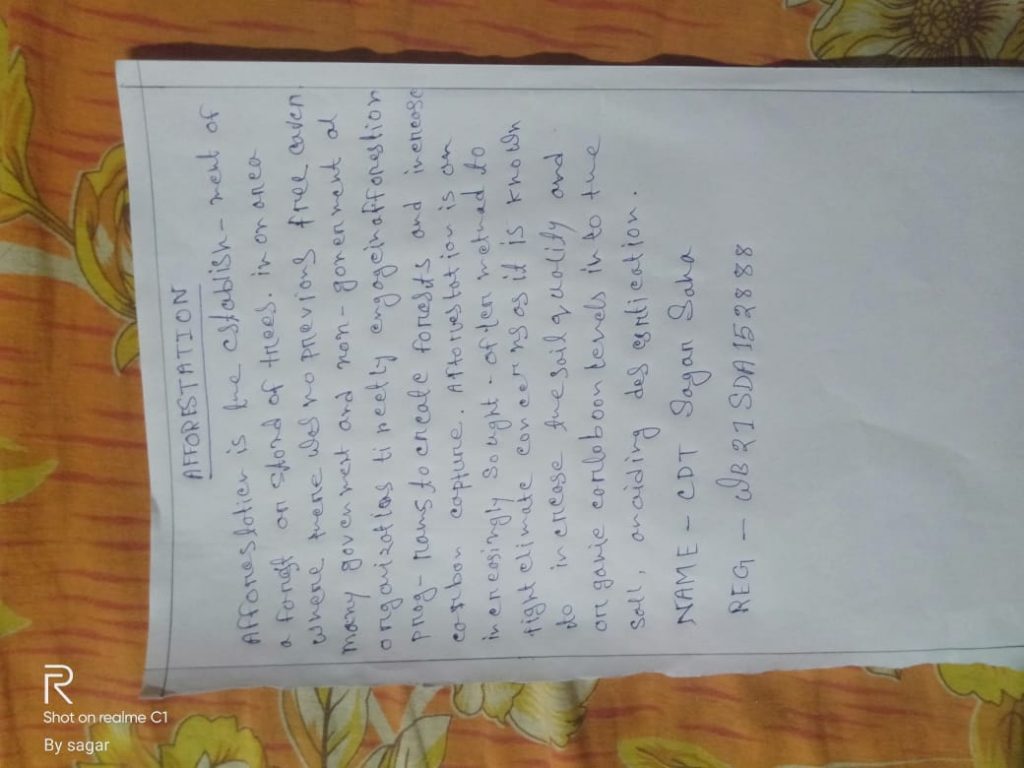 AFFORESTATION
Afforestation is the establish-ment of
a forest or stand of trees. in an area
where there was no previous free caver.
many goverment and non-gonernment al
organizations directly engage in afforestion
prog-rams to create forests and increase
carbon capture. Afforestation is an
increasingly sought-after method to
fight climate concerns as it is known
to increase the soil quality and
organic carboboon levels into the
soil, avoiding desertication.
NAME - CDT Sagar Saha
REG - WB21SDA152888
R
Shot on realme C1
By sagar